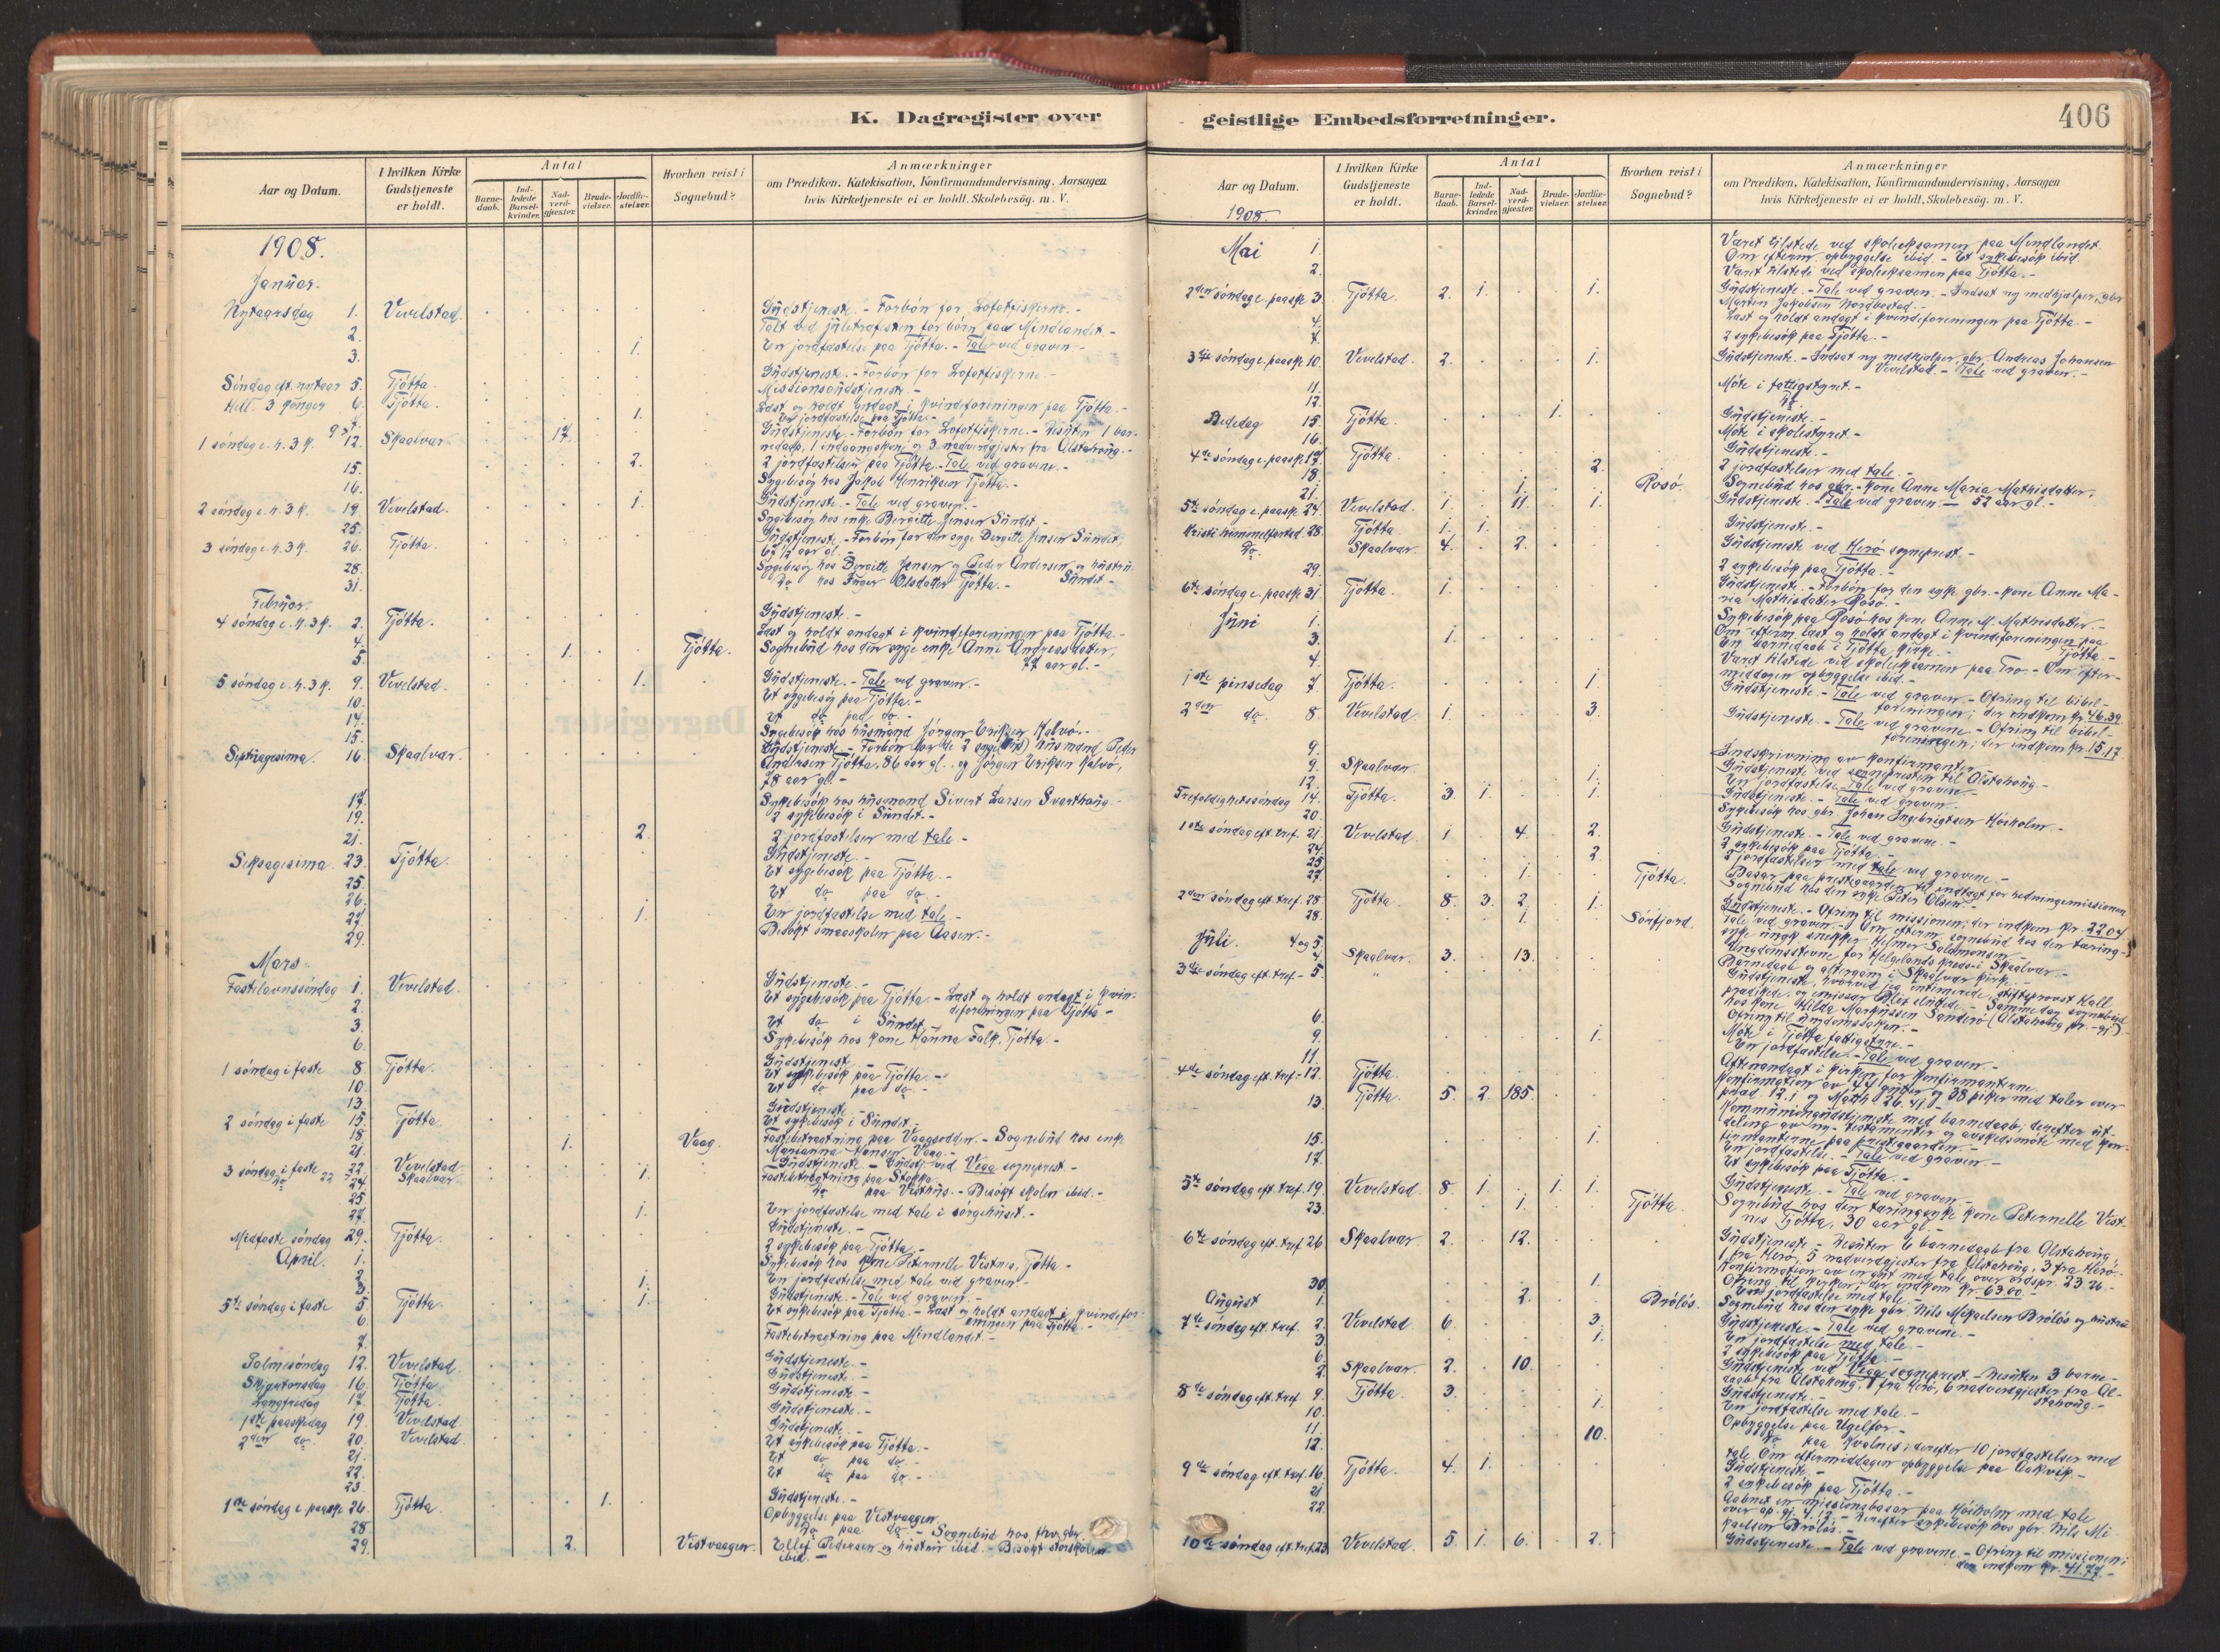 K. Dagregister over
Aar og Datum.
I hvilken Kirke Gudstjeneste er holdt.
Antal
Barne-daab.
Ind-ledede Barsel-kvinder.
Nad-verd-gjester.
Brude-vielser.
Jordfæ-stelser.
Hvorhen reist i Sognebud?
Anmærkninger
om Prædiken, Katekisation, Konfirmandundervisning, Aarsagen
hvis Kirketjeneste ei er holdt, Skolebesög. m. V.
1908.
Januar.
Nytaarsdag 1. Vevelstad. Gudstjeneste. - Forbøn for Lofotfiskerne. -
2. Talt ved juletræfesten for børn paa Mindlandet -
3. 1. En jordfæstelse paa Tjötta. - Tale ved graven. -
Söndag eft. nytaar 5. Tjötta. Gudstjeneste. - Forbøn for Lofotfiskerne. -
Hell. 3 konger 6. Tjötta. Missionsgudstjeneste. -
Læst og holdt andagt i kvindeforeningen paa Tjötta. -
1. En jordfæstelse paa Tjötta. -
1 söndag e. h. 3 k. 12. Skaalvær 17. Gudstjeneste. - Forbøn for Lofotfiskerne. - Desuten 1 bar-
nedaab, 1 indgangskone og 3 nadverdgjester fra Alstahoug. -
15. 2. 2 jordfæstelser paa Tjötta. - Tale ved gravene. -
16. Sygebesøg hos Jakob Henriksen Tjötta. -
2 söndag e. h. 3 k. 19. Vevelstad. 1. Gudstjeneste. - Tale ved graven. -
25. Sygebesøg hos enke Bergitte Jensen Sundet. -
3 söndag e. h. 3 k. 26. Tjötta. Gudstjeneste. - Forbøn for den syge Bergitte Jensen Sundet,
aar gl. -
28. Sygebesøg hos Bergitte Jensen og Peder Andersen og hustru
31. Do hos Inger Olsdatter Tjötta. - Sundet. -
Februar.
4 söndag e. h. 3 k. 2. Tjötta. Gudstjeneste. -
4. Læst og holdt andagt i kvindeforeningen paa Tjötta. -
5. 1. Tjötta. Sognebud hos den syge enke Anne Andreasdatter,
77 aar gl. -
5 söndag e. h. 3 k. 9. Vevelstad. 1. Gudstjeneste. - Tale ved graven. -
10. Et sygebesøg paa Tjötta. -
14. Et do paa do. -
15. Sygebesök hos husmand Jörgen Eriksen Kalvö. -
Septuagesima. 16. Skaalvær. Gudstjeneste. - Forbøn for de 2 syge husmand Peder
Andersen Tjötta, 86 aar gl., og Jörgen Eriksen Kalvö,
78 aar gl. -
17. Sykebesök hos husmand Sivert Larsen Svarthaug. -
19. 2 sykebesök i Sundet. -
21. 2. 2 jordfæstelser med tale. -
Seksagesima. 23. Tjötta. Gudstjeneste. -
25. Et sygebesök paa Tjötta. -
26. Et do paa do. -
27. 1. En jordfæstelse med tale. -
29. Besökt smaaskolen paa Aasen. -
Mars.
Fastelavnssöndag 1. Vevelstad. Gudstjeneste. -
2. Et sygebesök paa Tjötta. - Læst og holdt andagt i kvin-
deforeningen paa Tjötta. -
3. Et do i Sundet. -
6. Sykebesök hos kone Hanna Falk, Tjötta. -
1 söndag i faste 8. Tjötta. Gudstjeneste. -
10. Et sykebesök paa Tjötta. -
13. Et do paa do. -
2 söndag i faste 15. Tjötta. Gudstjeneste. -
18. Et sykebesök i Sundet. -
21. 1. Vaag. Fastebetragtning paa Vaagsodden. - Sognebud hos enke
Marianna Hansen Vaag. -
3 söndag i faste 22. Vevelstad. Gudstjeneste. - Gudstj. ved Vega sogneprest. -
Do 22 Skaalvær.
24. 1. Fastebetragtning paa Stokka.
25. Do paa Visthus. - Besökt skolen ibid. -
27. 1. En jordfæstelse med tale i sörgehuset. -
Midfaste söndag 29. Tjötta. Gudstjeneste. -
April. 1. 2 sykebesök paa Tjötta. -
2. Sykebesök hos kone Peternelle Vistnes, Tjötta. -
3. 1. En jordfæstelse med tale ved graven. -
5te söndag i faste 5. Tjötta. 1. Gudstjeneste. - Tale ved graven. -
6. Et sykebesök paa Tjötta. - Læst og holdt andagt i kvindefor-
eningen paa Tjötta. -
7. Fastebetragtning paa Mindlandet. -
Palmesöndag 12. Vevelstad. Gudstjeneste. -
Skjærtorsdag 16. Tjötta. Gudstjeneste. -
Langfredag 17. Tjötta. Gudstjeneste. -
1ste paaskedag 19. Vevelstad. Gudstjeneste. -
2den do. 20. Vevelstad. Gudstjeneste. -
21. Et sykebesök paa Tjötta. -
22. Et do paa do. -
23. Et do paa do. -
1ste söndag e. paaske 26. Tjötta. 1. Gudstjeneste. -
28. Opbyggelse paa Vistvaagen.
29. 2. Vistvaagen. Do paa do. - Sognebud hos fhv. gbr.
Ellef Pedersen og hustru ibid. - Besökt storskolen
ibid. -
geistlige Embedsforretninger.
406
Aar og Datum.
I hvilken Kirke Gudstjeneste er holdt.
Antal
Barne-daab.
Ind-ledede Barsel-kvinder.
Nad-verd-gjester.
Brude-vielser.
Jordfæ-stelser.
Hvorhen reist i Sognebud?
Anmærkninger
om Prædiken, Katekisation, Konfirmandundervisning, Aarsagen
hvis Kirketjeneste ei er holdt, Skolebesög. m. V.
1908.
Mai 1. Været tilstede ved skoleeksamen paa Mindlandet.
Om efterm. opbyggelse ibid. - Et sykebesök ibid.
2. Været tilstede ved skoleeksamen paa Tjötta. -
2den söndag e. paaske 3. Tjötta. 2. 1. 1. Gudstjeneste. - Tale ved graven. - Indsat ny medhjælper, gbr.
Martin Jakobsen Nordbostad. -
4. Læst og holdt andagt i kvindeforeningen paa Tjötta. -
7. 2 sykebesök paa Tjötta. -
3dje söndag e. paaske 10. Vevelstad. 2. 1. Gudstjeneste. - Indsat ny medhjælper, gbr. Andreas Johansen
Vevelstad. - Tale ved graven. -
11. Möte i fattigstyret. -
12. 1.
Bededag 15. Tjötta. Gudstjeneste. -
16. Möte i skolestyret. -
4de söndag e. paaske 17. Tjötta. Gudstjeneste. -
18. 2. 2 jordfæstelser med tale. -
21. 1. Rosö. Sognebud hos gbr.-kone Anne Maria Mathisdatter,
52 aar gl. -
5te söndag e. paaske 24. Vevelstad. 1. 11. 1. Gudstjeneste. - Tale ved graven. -
Kristi himmelfartsd. 28. Tjötta. 1. 1. Gudstjeneste. -
Do. Skaalvær. 4. 2. Gudstjeneste ved Herö sogneprest. -
29. 2 sykebesök paa Tjötta. -
6te söndag e. paaske 31. Tjötta. 1. Gudstjeneste. - Forbøn for den syke gbr.-kone Anne Ma-
ria Mathisdatter Rosö. -
Juni 1. Sykebesök paa Rosö hos kone Anne M. Mathisdatter. -
Om efterm. læst og holdt andagt i kvindeforeningen paa
Tjötta. -
3. 1. En barnedaab i Tjötta kirke. -
4. Været tilstede ved skoleeksamen paa Tro. - Om efter-
middagen opbyggelse ibid. -
1ste pinsedag 7. Tjötta. 1. Gudstjeneste. - Tale ved graven. - Ofring til bibel-
foreningen; der indkom kr. 46.39
2den do. 8. Vevelstad. 1. 3. Gudstjeneste. - Tale ved gravene. - Ofring til bibel-
foreningen; der indkom kr. 15.17
9. Indskrivning av konfirmanter. -
9. Skaalvær. Gudstjeneste ved sognepresten til Alstahoug. -
12. 1. En jordfæstelse. - Tale ved graven. -
Trefoldighetssöndag 14. Tjötta. 3. 1. 1. Gudstjeneste. - Tale ved graven. -
20. Sykebesök hos gbr. Johan Ingebrigtsen Höiholm. -
1ste söndag eft. tref. 21. Vevelstad. 1. 4. 2. Gudstjeneste. - Tale ved gravene. -
24. 2 sykebesök paa Tjötta. -
25. 2. 2 jordfæstelser med tale ved gravene. -
27. 1. Tjötta. Basar paa prestegaarden til indtægt for hedningemissionen.
Sognebud hos den syke Peter Olsen. -
2den söndag eft. tref. 28. Tjötta. 8. 3. 2. 1. Gudstjeneste. - Ofring til missionen; der indkom kr. 22.04
28. 1. Sörfjord. Tale ved graven. - Om efterm. sognebud hos den tæring-
syke ungk. snekker Helmer Salamonsen. -
Juli. 4 og 5. Ungdomsstevne for Helgelands kreds i Skaalvær. -
4. Skaalvær. 3. 13. Barnedaab og altergang i Skaalvær kirke. -
3dje söndag eft. tref. - 5. " Gudstjeneste, hvorved jeg intimerede, stiftsprovst Hall
prædikede, og emissær Blix sluttede. - Samme dag sognebud
hos kone Hilda Markussen Sanderö (Alstahoug pr.-gj.)
Ofring til ungdomssaken. -
6. Möte i Tjötta fattigstyre. -
9. 1. En jordfæstelse. - Tale ved graven. -
11. Aftenandagt i kirken for konfirmanterne.
4de söndag eft. tref. - 12. Tjötta. Konfirmation av 44 gutter og 38 piker med taler over
præd. 12.1 og Matth. 26.41. -
13. Tjötta. 5. 2. 185. Kommuniongudstjeneste med barnedaab, derefter ut-
deling av ny-testamenter og avskedsmöte med kon-
firmanterne paa prestegaarden. -
15. 1. En jordfæstelse. - Tale ved graven. -
17. Et sykebesök paa Tjötta. -
5te söndag eft. tref. 19. Vevelstad. 8. 1. 1. 1. Gudstjeneste. - Tale ved graven. -
23. 1. Tjötta. Sognebud hos den tæringssyke kone Peternelle Vist-
nes Tjötta, 30 aar gl. -
6te söndag eft. tref. 26. Skaalvær. 2. 12. Gudstjeneste. - Desuten 6 barnedaab fra Alstahoug,
1 fra Herö, 5 nadverdgjester fra Alstahoug, 3 fra Herö.
Konfirmation av en gut med tale over ordspr. 23.26. -
Ofring til kirken; der indkom kr. 63.00. -
30. 1. En jordfæstelse med tale. -
August 1. 2. Brölös. Sognebud hos den syke gbr. Nils Mikaelsen Brölös og hustru
7de söndag eft. tref. 2. Vevelstad. 6. 3. Gudstjeneste. - Tale ved gravene. -
3. 1. En jordfæstelse med tale. -
6. 2 sykebesök paa Tjötta. -
2. Skaalvær. 2. 10. Gudstjeneste ved Vega sogneprest. - Desuten 3 barne-
daab fra Alstahoug, 1 fra Herö, 6 nadverdgjester fra Al-
stahoug. -
8de söndag eft. tref. 9. Tjötta. 3. Gudstjeneste. -
10. 1. En jordfæstelse med tale. -
11. Opbyggelse paa Ugelfor. -
12. 10. Do paa Kvalnes; derefter 10 jordfæstelser med
tale. Om eftermiddagen opbyggelse paa Aakvik. -
9de söndag eft. tref. 16. Tjötta. 4. 1. Gudstjeneste. -
21. 2 sykebesök paa Tjötta. -
22. Aabnet en missionsbasar paa Höiholm med tale
over ap. gj. 4.12. - Derefter sykebesök hos gbr. Nils Mi-
kaelsen Brölös. -
10de söndag eft. tref. 23. Vevelstad. 5. 1. 6. 2. Gudstjeneste. - Tale ved gravene. - Ofring til missionen;
der indkom kr. 41.77. -